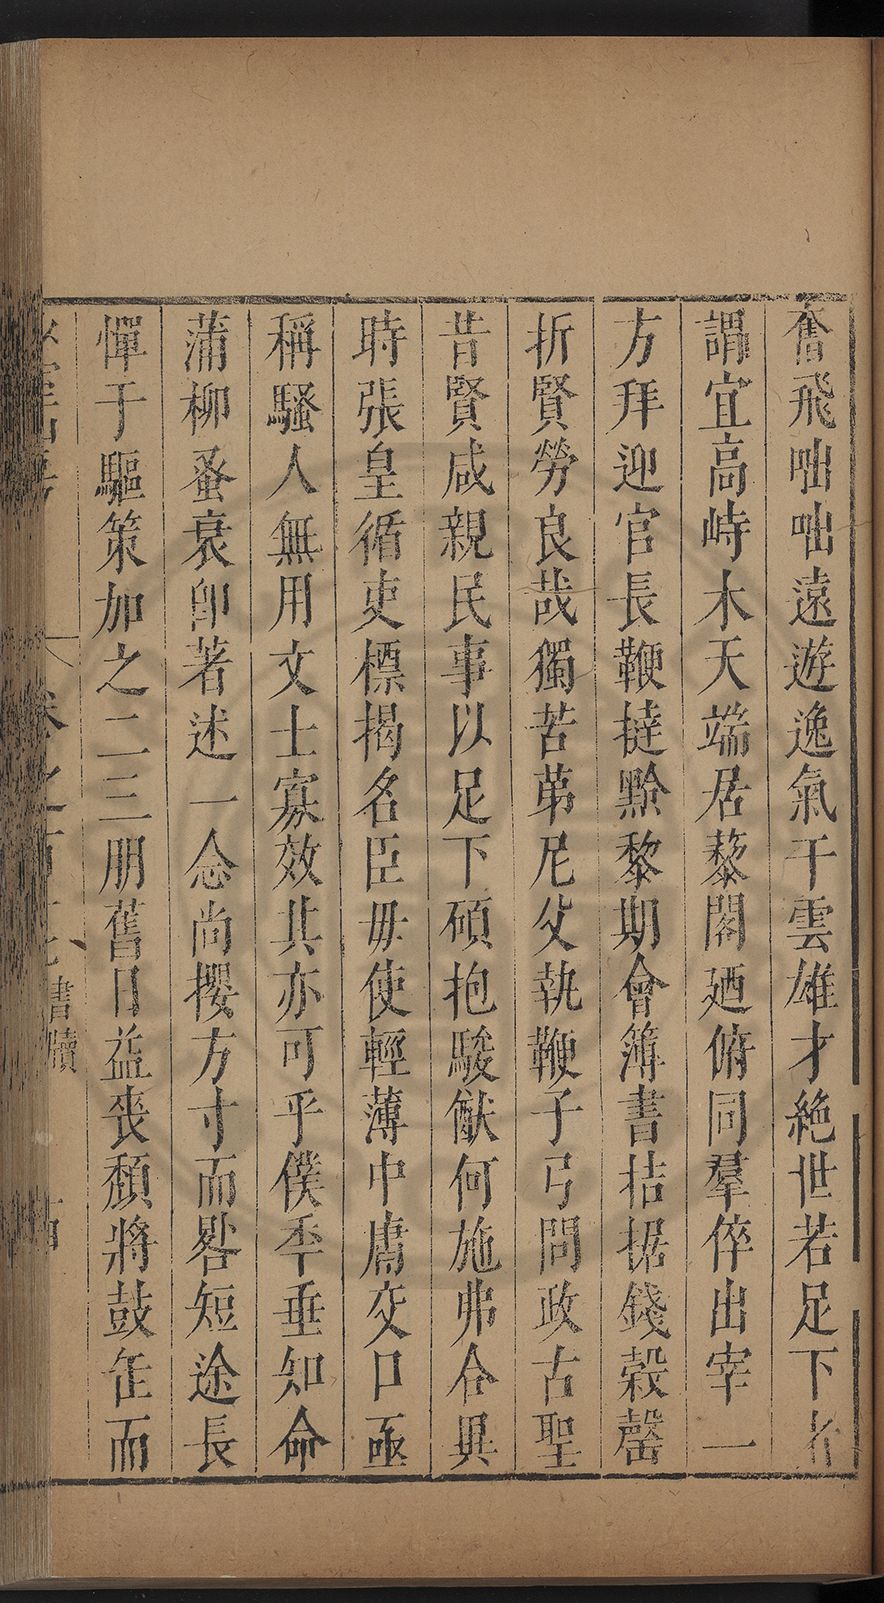 奮飛咄咄遠遊逸氣干雲雄才絶世若足下者
謂宜高峙木天端居藜閣廼俯同羣倅出宰一
方拜迎官長鞭撻黔黎期會簿書拮据錢穀罄
折賢勞良哉獨苦苐尼父執鞭子弓問政古聖
昔賢咸親民事以足下碩抱駿猷何施弗合異
時張皇循吏標揭名臣毋使輕薄中庸交口亟
稱騷人無用文士寡效其亦可乎僕秊垂知命
蒲柳蚤衰卽著述一念尚攖方寸而晷短途長
憚于驅策加之二三朋舊日益喪頹將鼓缶而
書牘